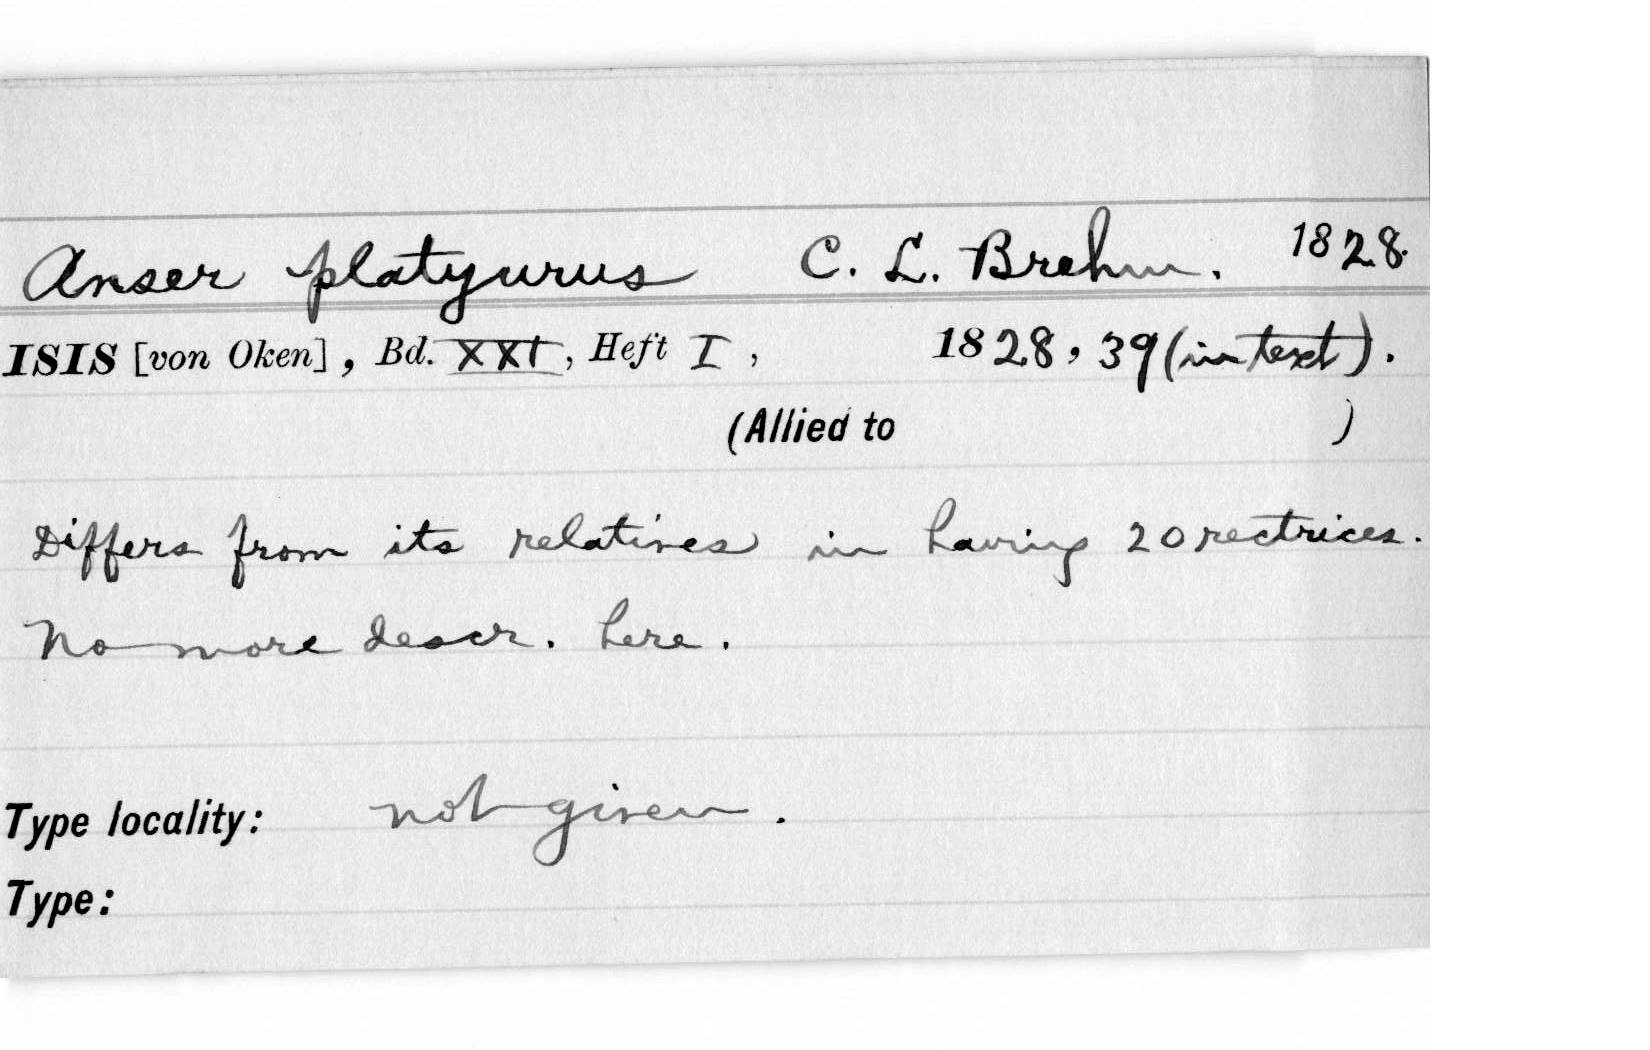 Anser platyurus C. L. Brehm. 1828.
ISIS [von Oken], Bd. XXI, Heft I, 1828, 39 (in text).
(Allied to )
Differs from its relatives in having 20 rectrices.
No more descr. here.
Type locality: not given.
Type: